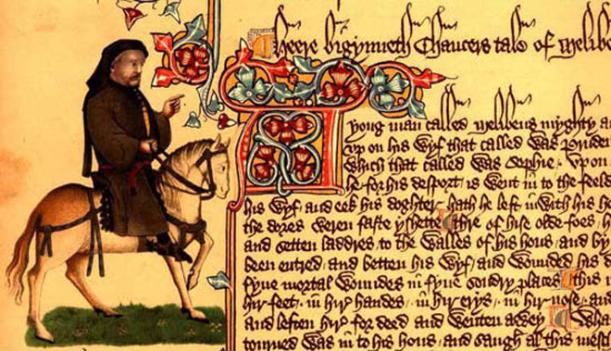 Heere bigynneth Chaucers tale of melibe
A yong man called melibeus myghty
vp on his wyf that called was
which that called was Sophie . vpon
he for his desport is went in to the feeld
his wyf and eek his doghter hath he left in with his
the dores weren faste yshette thre of hise olde foes
and setten laddres to the walles of his hous and by
been entred and betten his wyf and wounded his
fyue mortal woundes in fyue sondry places this
hir feet . in hir handes . in hir erys . in hir nose
and leften hir for deed and wenten awey
torned was in to his hous and saugh al this